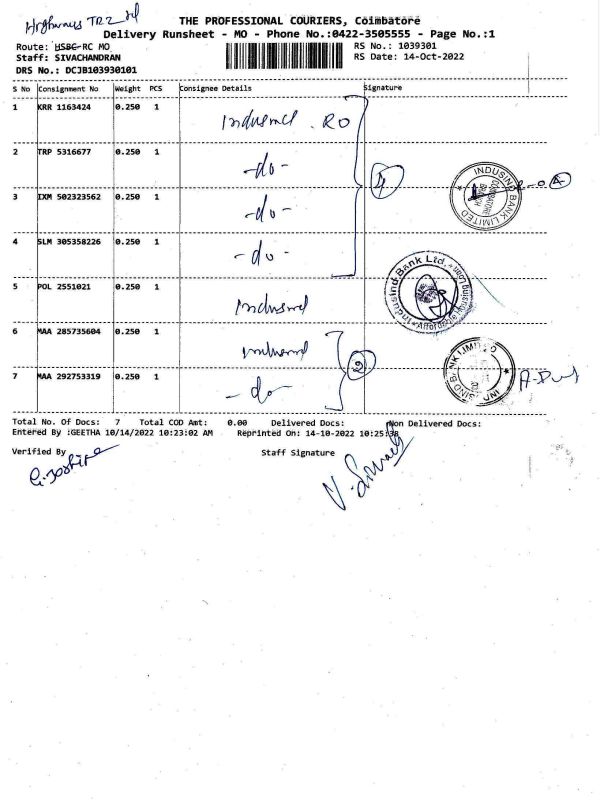 THE PROFESSIONAL COURIERS, Coimbatore
Delivery Runsheet - MO - Phone No.:0422-3505555 - Page No.:1
Route: HSBC-RC MO RS No.: 1039301
Staff: SIVACHANDRAN RS Date: 14-Oct-2022
DRS No.: DCJB103930101
S No Consignment No Weight PCS Consignee Details Signature
1 KRR 1163424 0.250 1 RO
2 TRP 5316677 0.250 1 -do-
4
INDUSIND BANK LIMITED
COIMBATORE BRANCH
3 IXM 502323562 0.250 1 -do-
4 SLM 305358226 0.250 1 -do-
IndusInd Bank Ltd.
Affordable Housing Loan
5 POL 2551021 0.250 1 Indusind
6 MAA 285735604 0.250 1 Indusind
2
7 MAA 292753319 0.250 1 -do-
Total No. Of Docs: 7 Total COD Amt: 0.00 Delivered Docs: Non Delivered Docs:
Entered By :GEETHA 10/14/2022 10:23:02 AM Reprinted On: 14-10-2022 10:25:38
Verified By Staff Signature